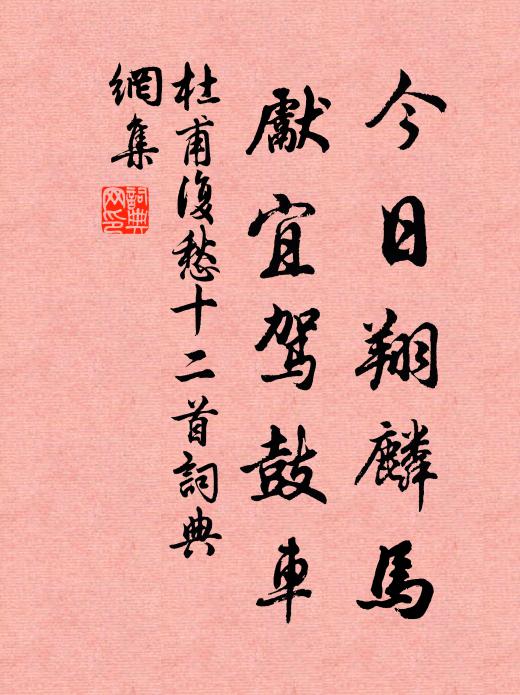 今日翔麟馬
獻宜駕鼓車
杜甫復愁十二首詞典
網集
詞典
网印